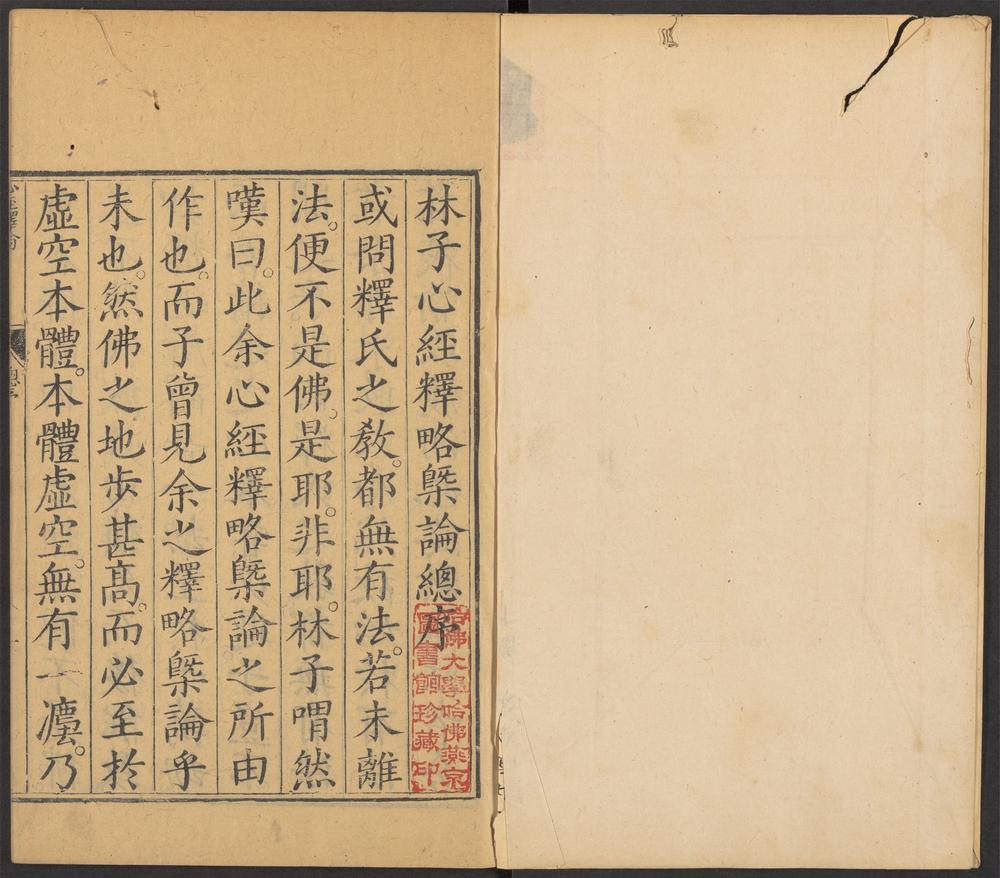 林子心經釋略槩論總序
或問釋氏之教。都無有法。若未離
法。便不是佛。是耶。非耶。林子喟然
嘆曰。此余心經釋略槩論之所由
作也。而子曾見余之釋略槩論乎
未也。然佛之地步甚高。而必至於
虛空本體。本體虛空。無有一㕓。乃
哈佛大學哈佛燕京
圖書館珍藏印